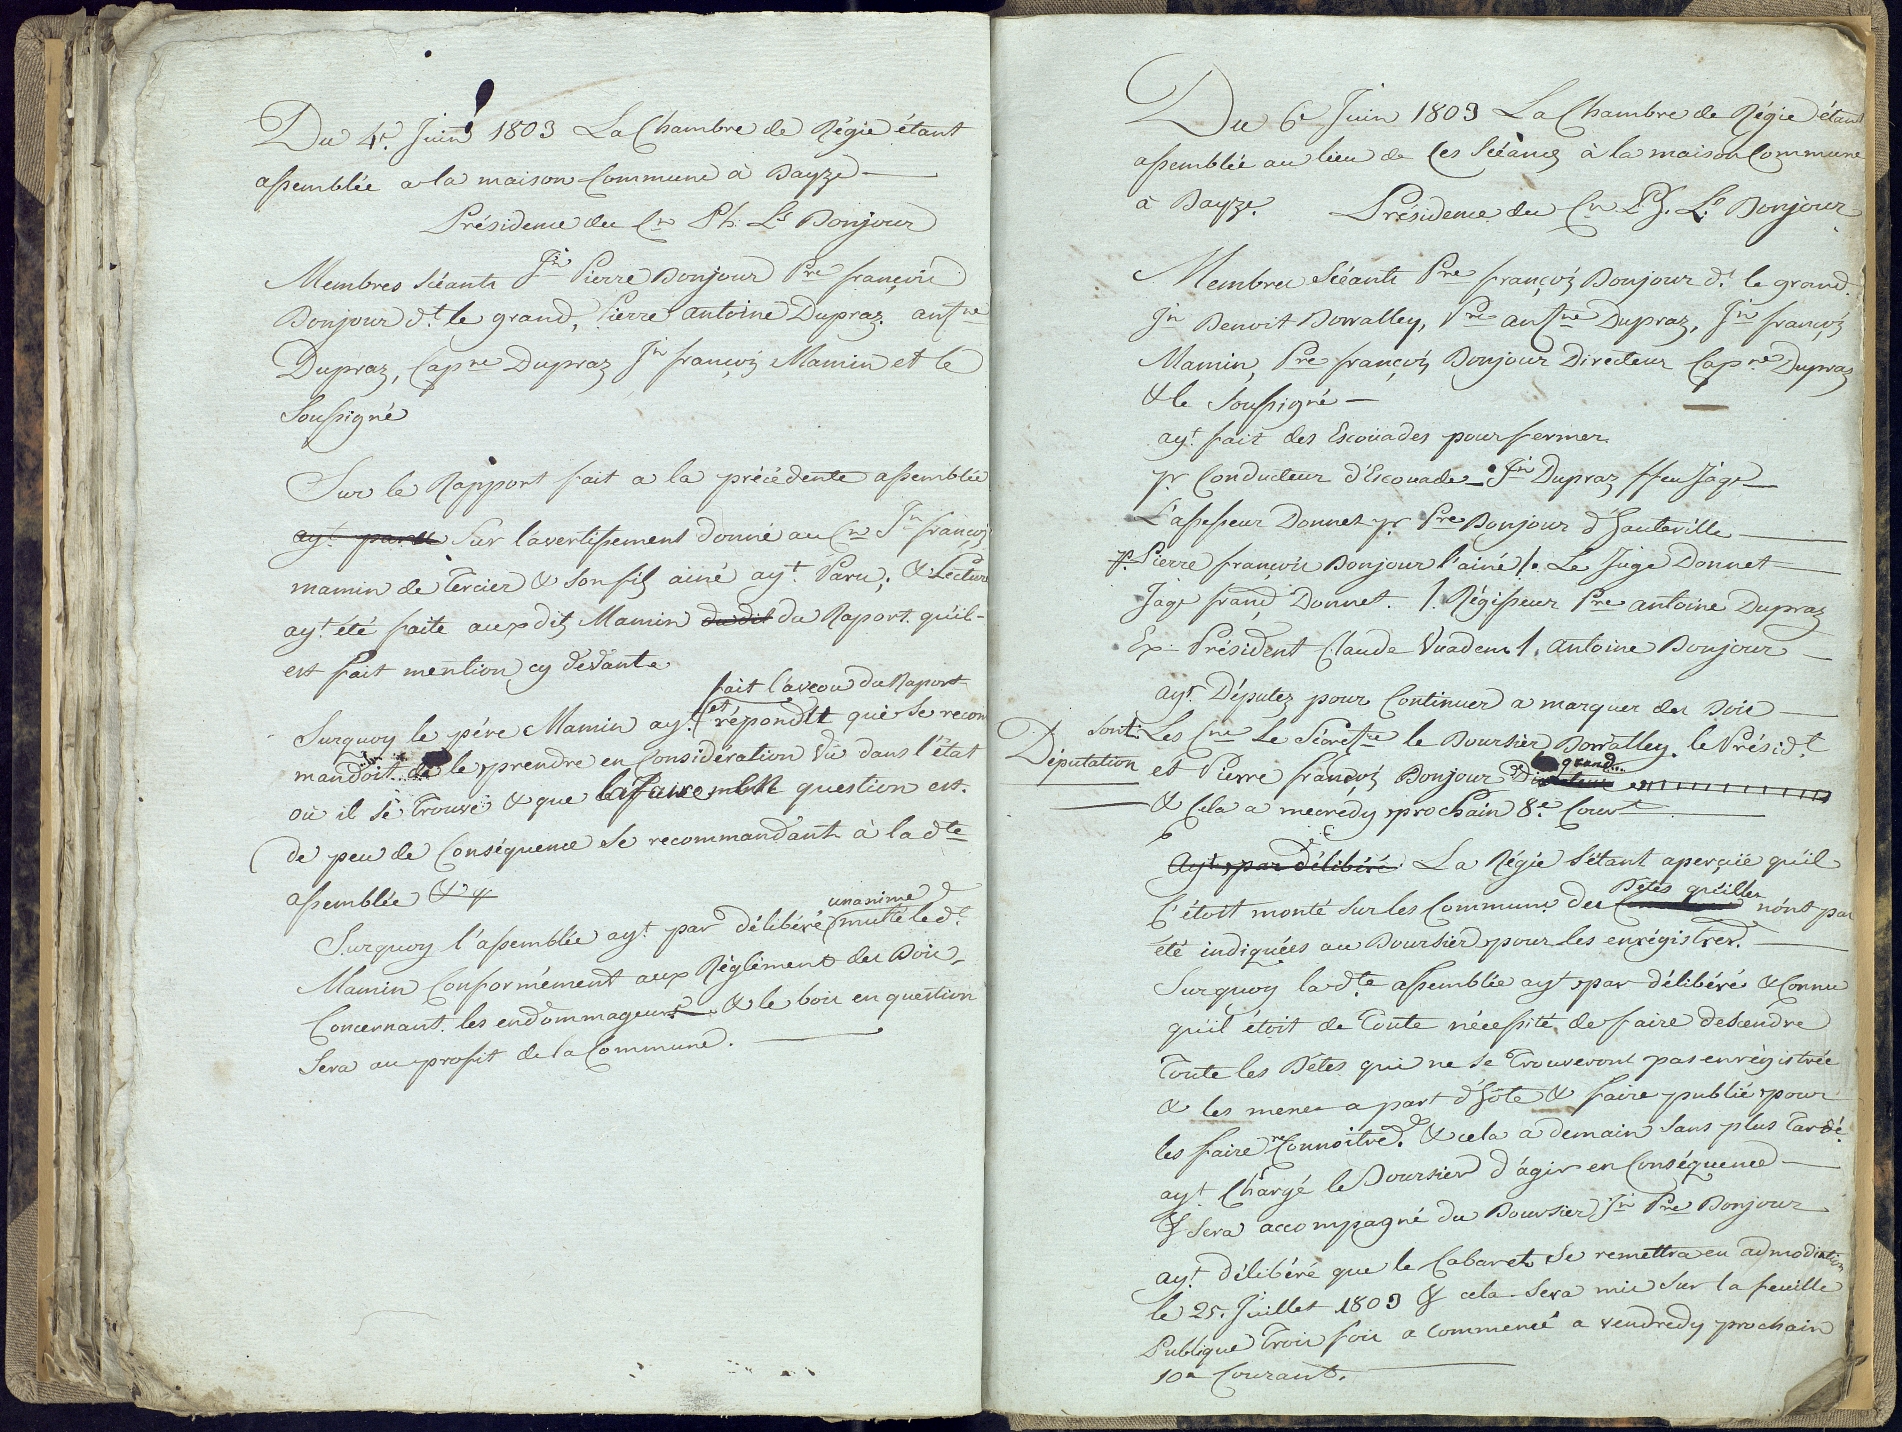 Du 4e. Juin 1803 La Chambre de Régie étant
assemblée a la maison Commune à Bayze
Présidence du Cn Ph. Ls Bonjour
Membres séants Jn Pierre Bonjour Pre françois
Bonjour dt. le grand, Pierre antoine Dupraz. antne
Dupraz, Capne Dupraz Jn françois Mamin et le
soussigné
Sur le Rapport fait a la précédente assemblée
ayt. paru Sur lavertissement donné au Cn Jn françois
mamin de Tercier & son fils ainé ayt. Paru; & Lecture
ayt. été faite aux dits Mamin du dit du Raport. qu'il
est fait mention cy devant
fait l'aveu du Raport
Surquoy le pére Mamin ayt. et répondit que se recom
mandoit de le prendre en Considération Vû dans l'état
où il se trouve & que question est.
de peu de Conséquence se recommandant à la dte
assemblée &
unanime
Surquoy l'assemblée ayt. par délibéré multe le dt
Mamin Conformément aux Réglément des Bois
Concernant. les endommageurs & le bois en question
sera au profit de la Commune.
Du 6e Juin 1803 La Chambre de Régie étant
assemblée au lieu de ces Séances à la maison Commune
à Bayze. Présidence du Cn Ph. Ls Bonjour
Membres Séants Pre françois Bonjour dt. le grand
Jn Benoit Borralley, Pre antne Dupraz, Jn françois
Mamin, Pre françois Bonjour Directeur Capne Dupraz
& le Soussigné
ayt. fait des Escouades pour fermer
pr Conducteur d'Escouade Jn Dupraz ffeu Jaqe
L'assesseur Donnet pr Pre Bonjour d'hauteville
p. Pierre françois Bonjour l'ainé /. Le Juge Donnet
Jaqe franç Donnet. /. Régisseur Pre antoine Dupraz
Ex-Président Claude Vuadens /. antoine Bonjour
ayt. Députez pour Continuer a marquer des Bois
sont: Les Cns Le Sécretre le Boursier Borralley. le Présidt
grand
Députation et Pierre françois Bonjour
& Cela a mecredy prochain 8e. Court
Ayt. par délibéré La Régie s'étant aperçüe qu'il
Bétes qu'elles
C'étoit monté sur les Communs des n'ont pas
été indiquées au Boursier pour les enrégistrer.
Surquoy la dte assemblée ayt par délibéré & Connu
qu'il étoit de toute nécessité de faire descendre
toute les Bétes qui ne se trouveront pas enrégistrée
& les mener a part d'hôte & faire publié pour
les faire reconnoitre. & cela a demain sans plus tardé.
ayt Chargé le Boursier d'agir en Conséquence
& sera accompagné du Boursier Jn Pre Bonjour
ayt. délibéré que le Cabaret se remettra en admodiation
le 25. Juillet 1803 & cela sera mis sur la feuille
Publique trois fois a commencé a vendredy prochain
10e Courant.